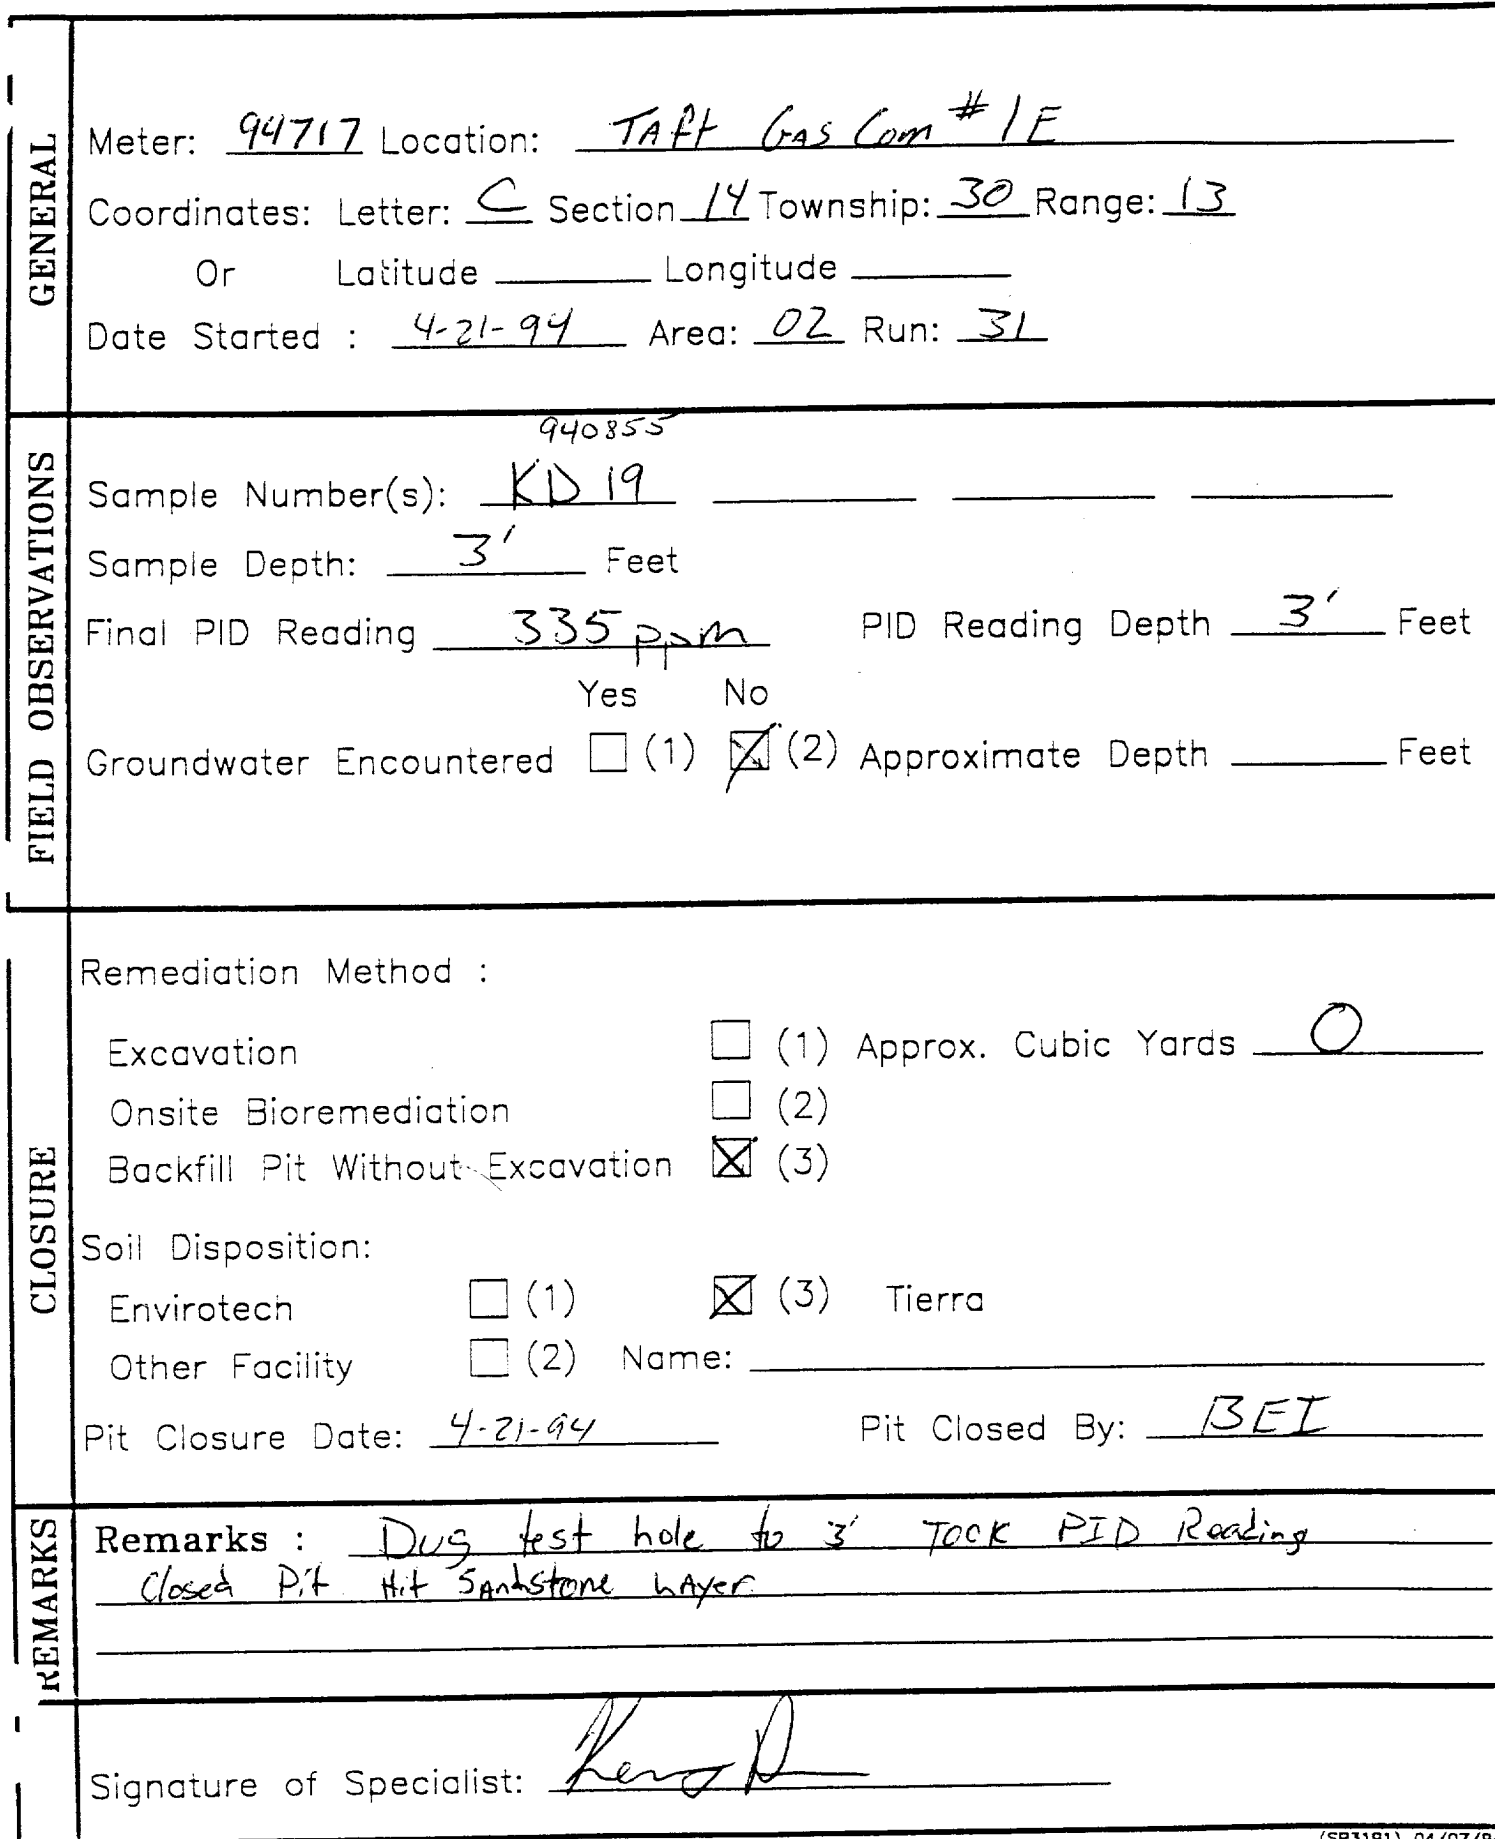 GENERAL
Meter: 94717 Location: TAft GAS Com # 1E
Coordinates: Letter: C Section 14 Township: 30 Range: 13
Or Latitude Longitude
Date Started : 4-21-94 Area: 02 Run: 31
FIELD OBSERVATIONS
940855
Sample Number(s): KD 19
Sample Depth: 3' Feet
Final PID Reading 335 ppm PID Reading Depth 3' Feet
Yes No
Groundwater Encountered (1) (2) Approximate Depth Feet
CLOSURE
Remediation Method :
Excavation (1) Approx. Cubic Yards 0
Onsite Bioremediation (2)
Backfill Pit Without Excavation (3)
Soil Disposition:
Envirotech (1) (3) Tierra
Other Facility (2) Name:
Pit Closure Date: 4-21-94 Pit Closed By: BEI
REMARKS
Remarks : Dug test hole to 3' TOCK PID Reading
Closed Pit Hit SAndstone LAyer
Signature of Specialist: